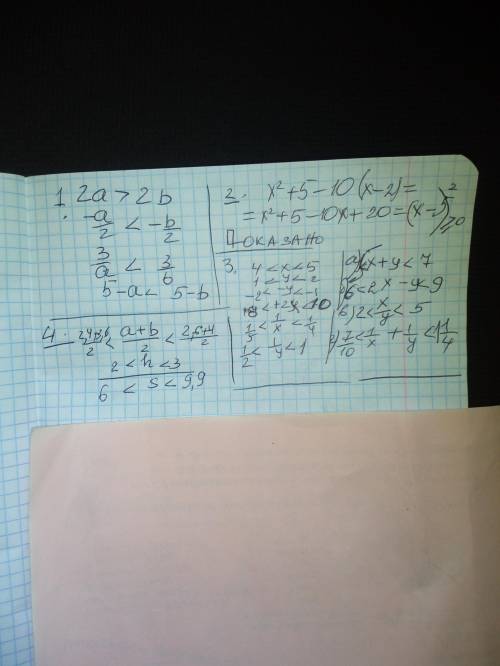 1. 2a > 2b
-a/2 < -b/2
3/a < 3/b
5-a < 5-b
2. x²+5-10(x-2)=
=x²+5-10x+20=(x-5)²≥0
ПОКАЗАНО
3. 4<x<5
1<y<2
-2<-y<-1
8<+2x<10
1/5<1/x<1/4
1/2<1/y<1
а) x+y<7
6<2x-y<9
в) 2<x/y<5
г) 7/10<1/x+1/y<1 1/4
4. <(a+b)/2<
2<h<3
6<s<9,9